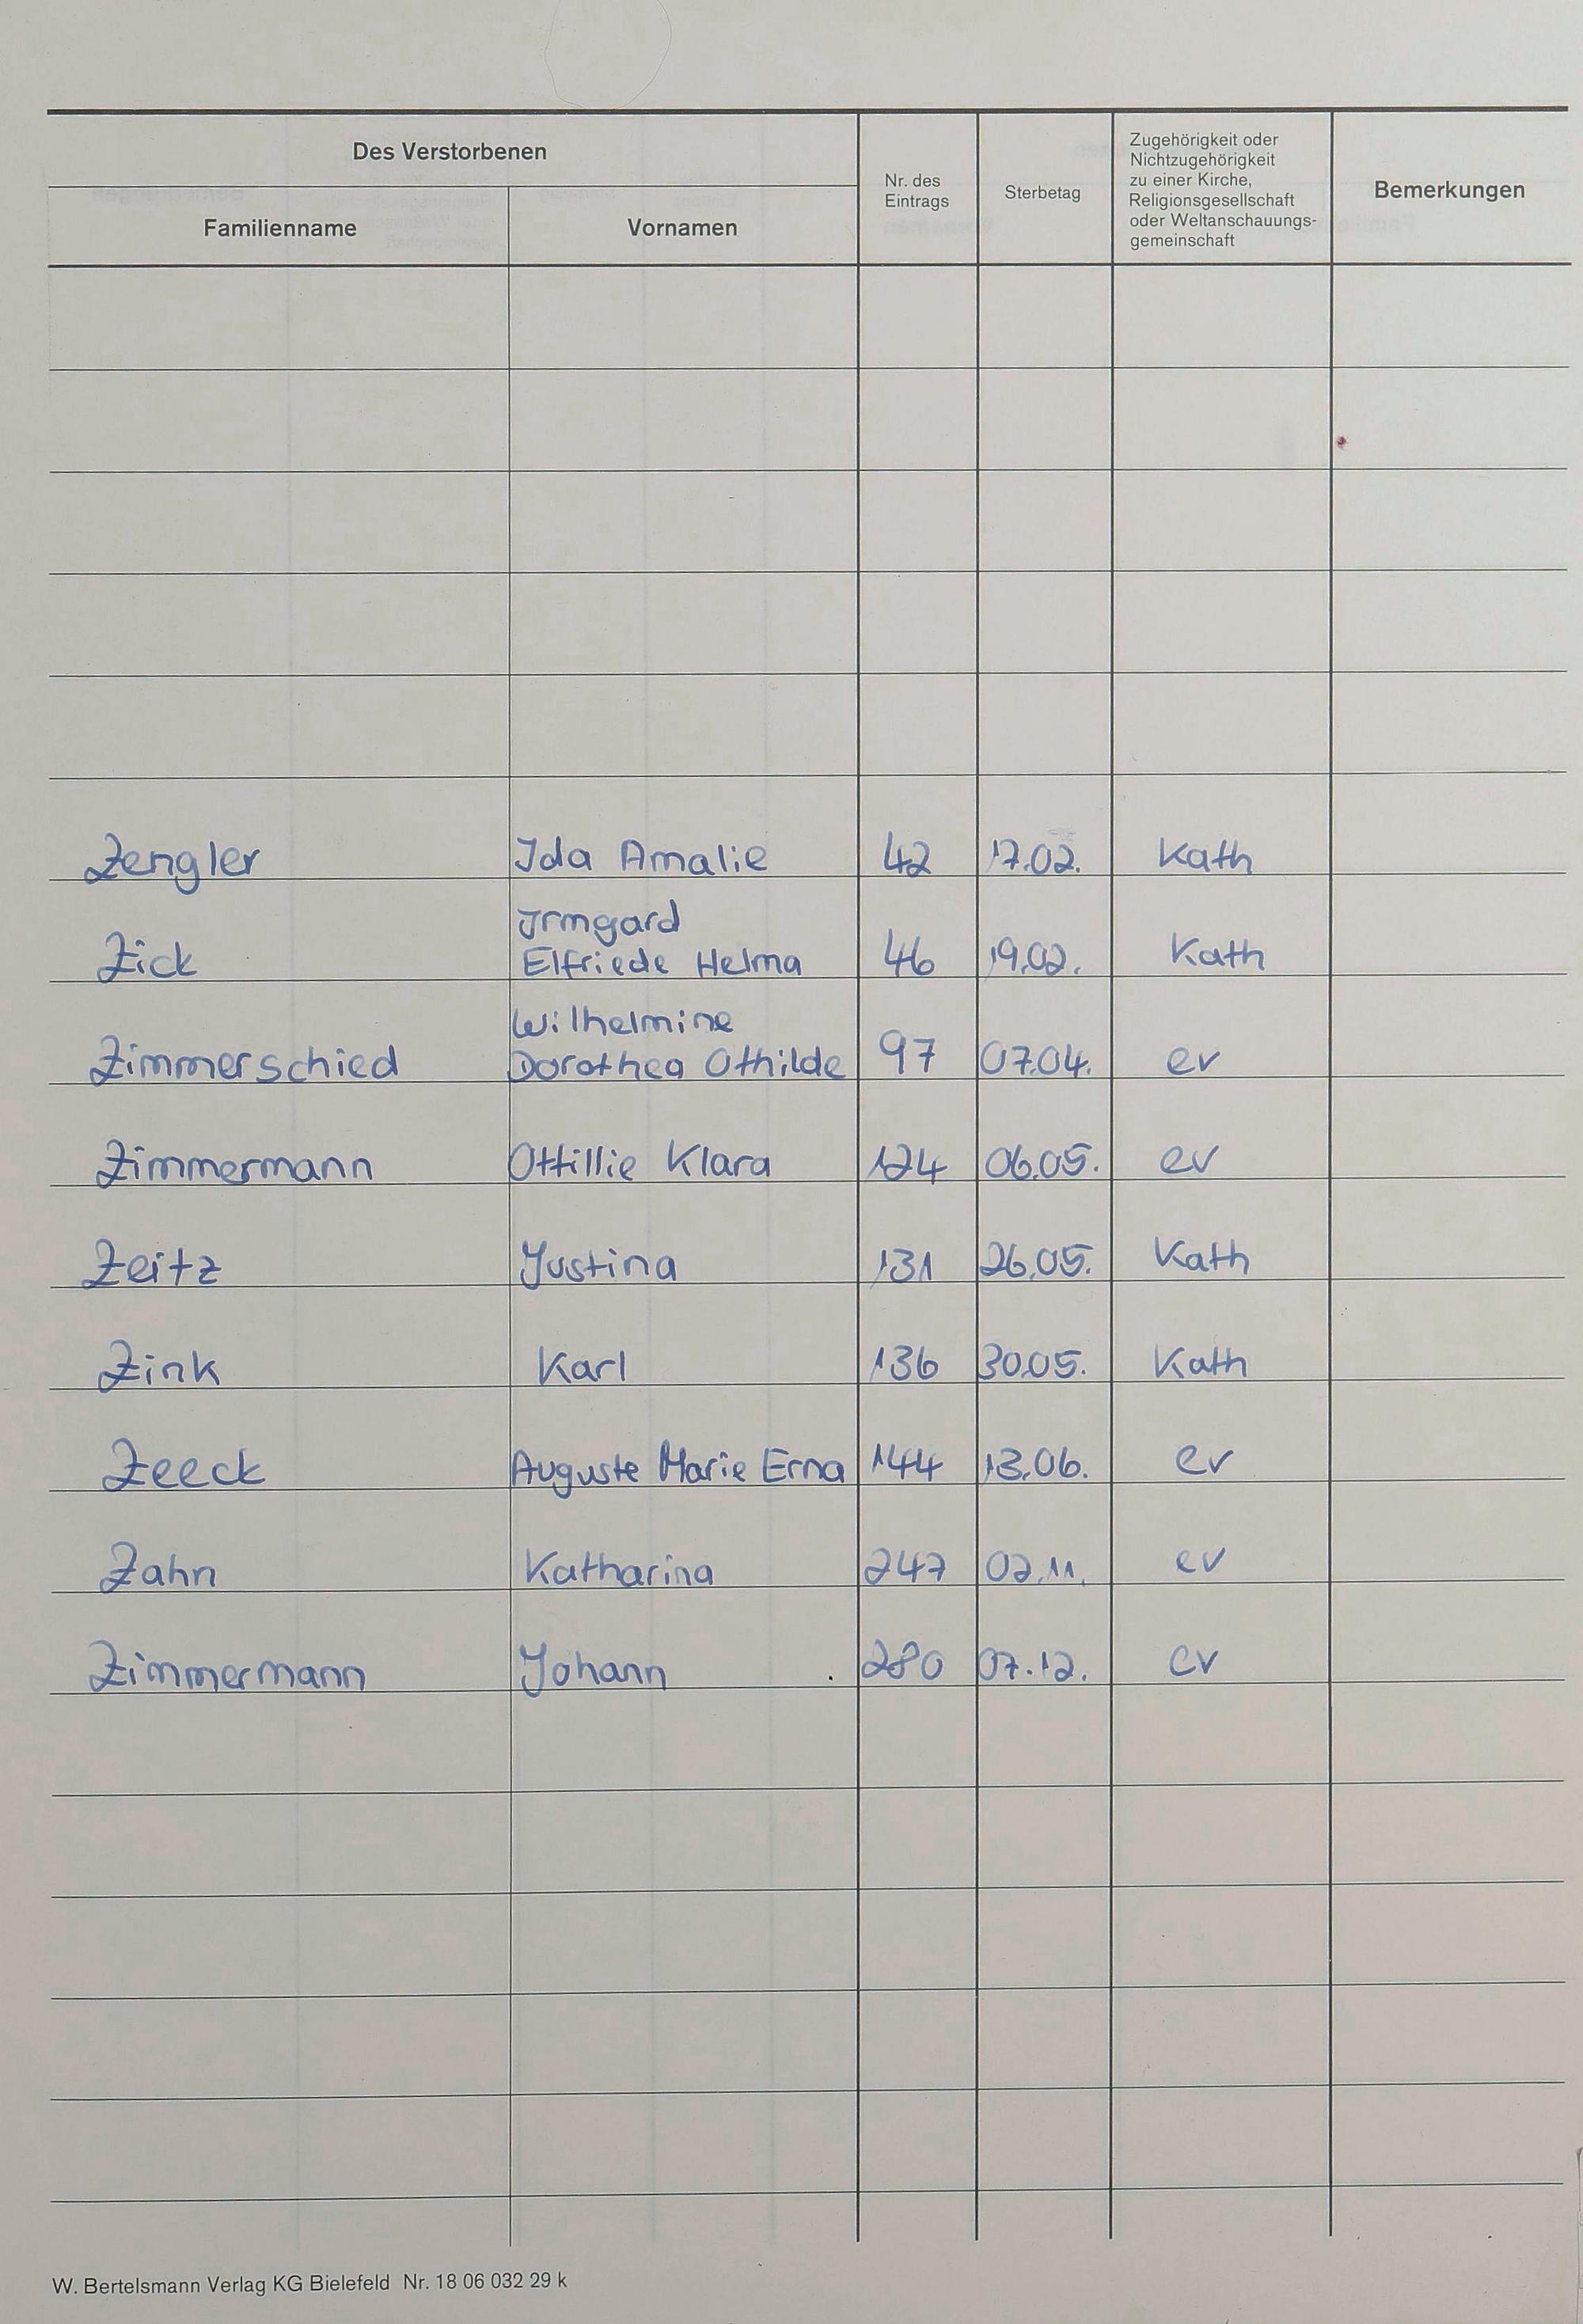 Des Verstorbenen
Familienname
Vornamen
Nr. des
Eintrags
Sterbetag
Zugehörigkeit oder
Nichtzugehörigkeit
zu einer Kirche,
Religionsgesellschaft
oder Weltanschauungs-
gemeinschaft
Bemerkungen
Zengler Ida Amalie 42 17.02. Kath
Irmgard
Zick Elfriede Helma 46 19.02. Kath
Wilhelmine
Zimmerschied Dorothea Othilde 97 07.04. ev
Zimmermann Ottillie Klara 124 06.05. ev
Zeitz Justina 131 26.05. Kath
Zink Karl 136 30.05. Kath
Zeeck Auguste Marie Erna 144 13.06. ev
Zahn Katharina 247 02.11. ev
Zimmermann Johann 280 07.12. ev
W. Bertelsmann Verlag KG Bielefeld Nr. 18 06 032 29 k